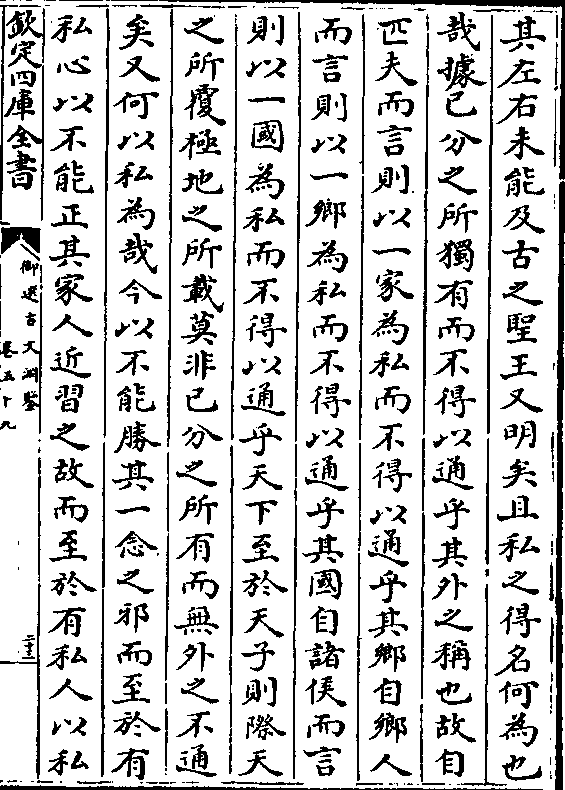 其左右未能及古之聖王又明矣且私之得名何為也
哉據已分之所獨有而不得以通乎其外之稱也故自
匹夫而言則以一家為私而不得以通乎其鄉自鄉人
而言則以一鄉為私而不得以通乎其國自諸侯而言
則以一國為私而不得以通乎天下至於天子則際天
之所覆極地之所載莫非已分之所有而無外之不通
矣又何以私為哉今以不能勝其一念之邪而至於有
私心以不能正其家人近習之故而至於有私人以私
欽定四庫全書
御選古文淵鑒
卷五十九
二十三